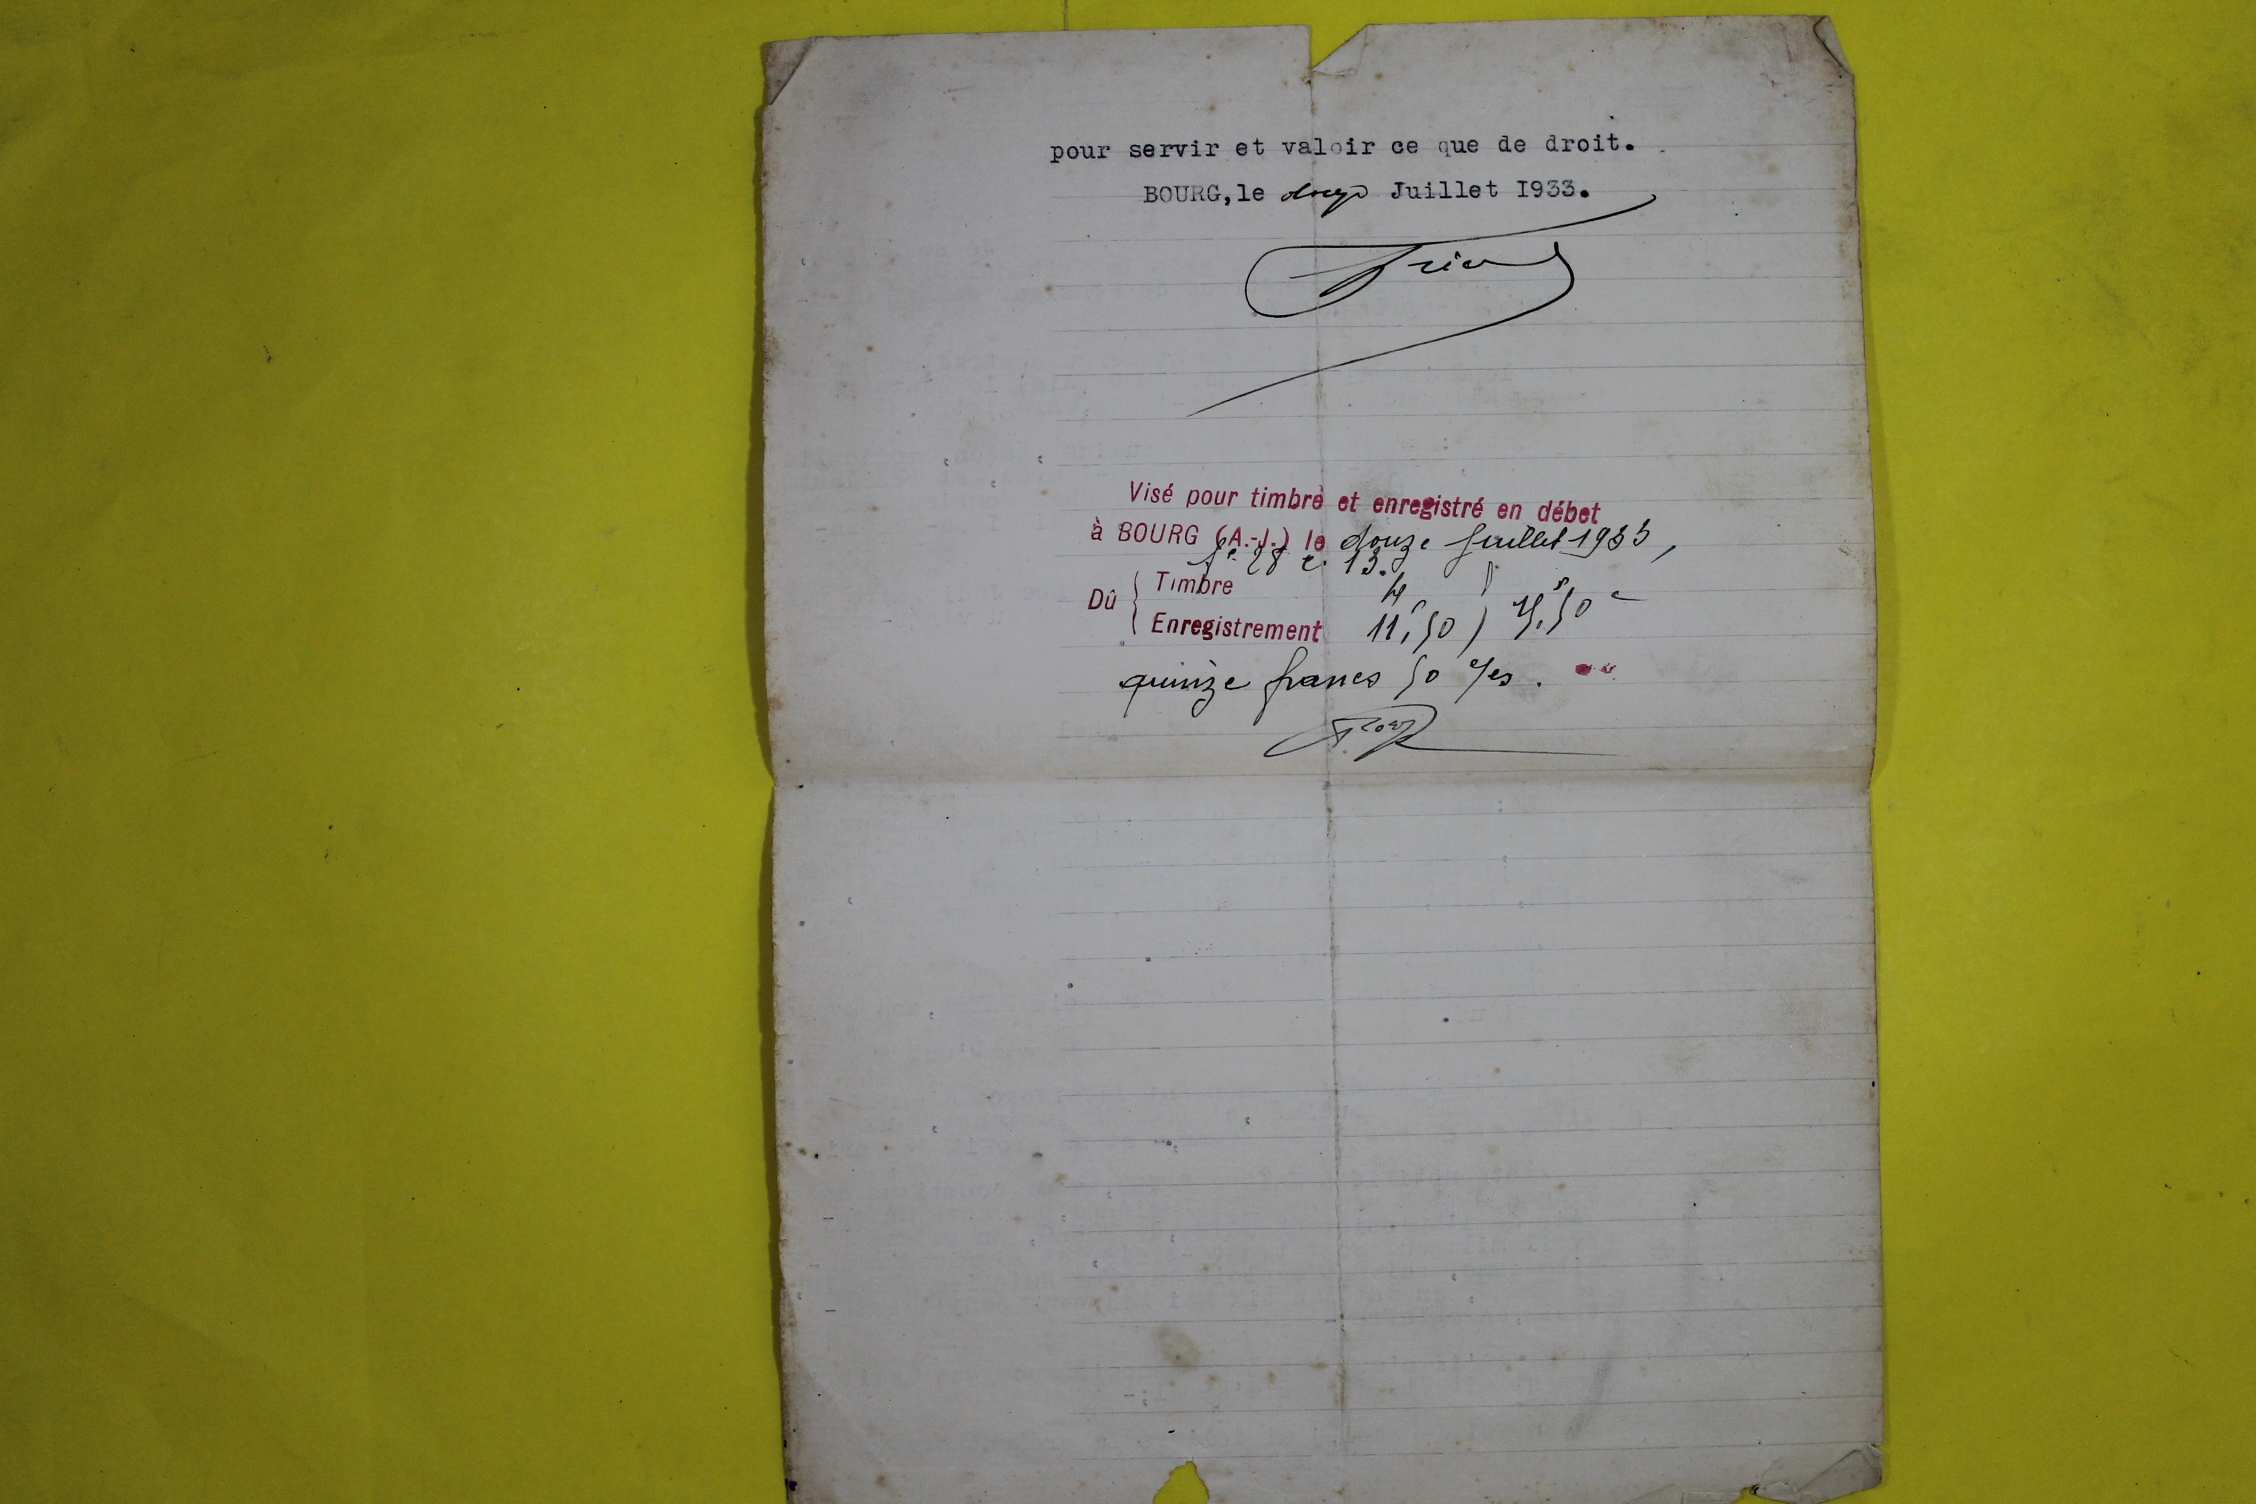 pour servir et valoir ce que de droit.
BOURG, le douze Juillet I933.
Visé pour timbre et enregistré en débet
à BOURG (A.-J.) le douze Juillet 1933,
fo 28 c. 13.
Dû { Timbre 4
Enregistrement 11,50 } 15,50
quinze francs 50 c/es.